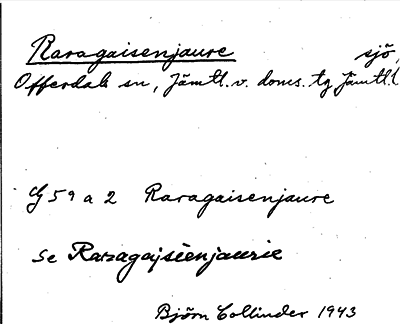 Raragaisenjaure sjö,
Offerdals sn, Jämtl. v. doms. tg Jämtl. l
G 59 a 2 Raragaisenjaure
Se Raragajsienjaurie
Björn Collinder 1943